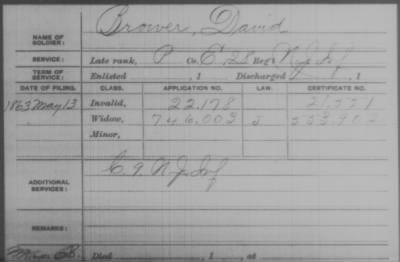 Brower, David
NAME OF SOLDIER:
SERVICE: Late rank, P Co. C, 28 Reg't N J Inf
TERM OF SERVICE: Enlisted , 1 Discharged , 1
DATE OF FILING. CLASS. APPLICATION NO. LAW. CERTIFICATE NO.
1863 May 13 Invalid, 22.178
Widow, 746.003
Minor,
C. 9. N J Inf
ADDITIONAL SERVICES:
REMARKS:
Died , 1 , at